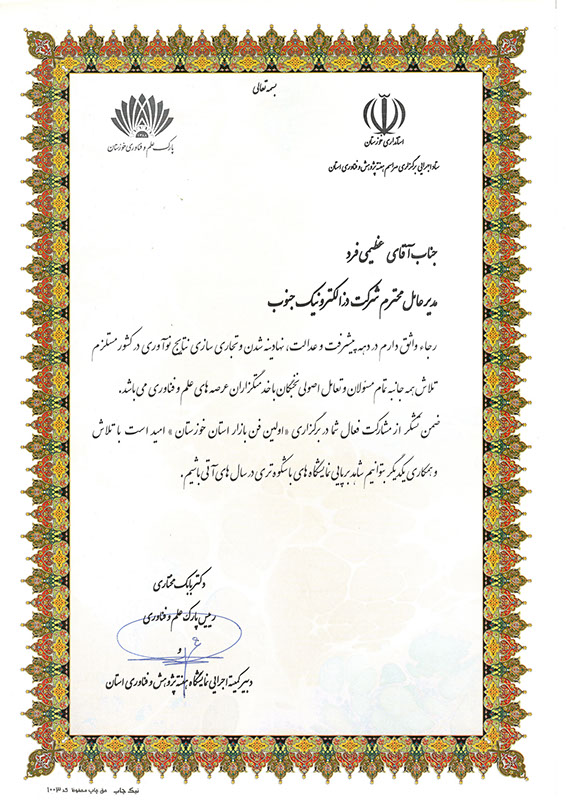 بسمه تعالی
استانداری خوزستان
پارک علم و فناوری خوزستان
ستاد اجرایی برگزاری مراسم هفته پژوهش و فناوری استان
جناب آقای عظیمی فرد
مدیرعامل محترم شرکت دز الکترونیک جنوب
رجاء واثق دارم در دهه پیشرفت و عدالت، نهادینه شدن و تجاری سازی نتایج نوآوری در کشور مستلزم
تلاش همه جانبه تمام مسئولان و تعامل اصولی نخبگان با خدمتگزاران عرصه های علم و فناوری می باشد.
ضمن تشکر از مشارکت فعال شما در برگزاری «اولین فن بازار استان خوزستان» امید است با تلاش
و همکاری یکدیگر بتوانیم شاهد برپایی نمایشگاه های باشکوه تری در سال های آتی باشیم.
دکتر بابک مختاری
رییس پارک علم و فناوری
و
دبیر کمیته اجرایی نمایشگاه هفته پژوهش و فناوری استان
نیک چاپ حق چاپ محفوظ کد ۱۰۰۳